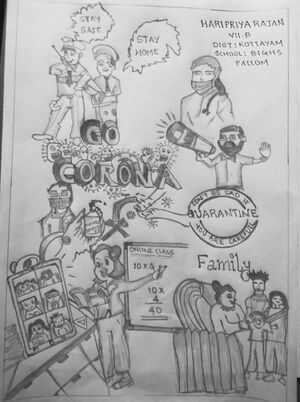 STAY
SAFE
STAY
HOME
HARIPRIYA RAJAN
VII-B
DIST: KOTTAYAM
SCHOOL: BIGHS
PALLOM
GO
CORONA
DON'T BE SAD IF
QUARANTINE
YOU ARE CAREFUL
ONLINE CLASS
10 x 4
10
x
4
40
Family